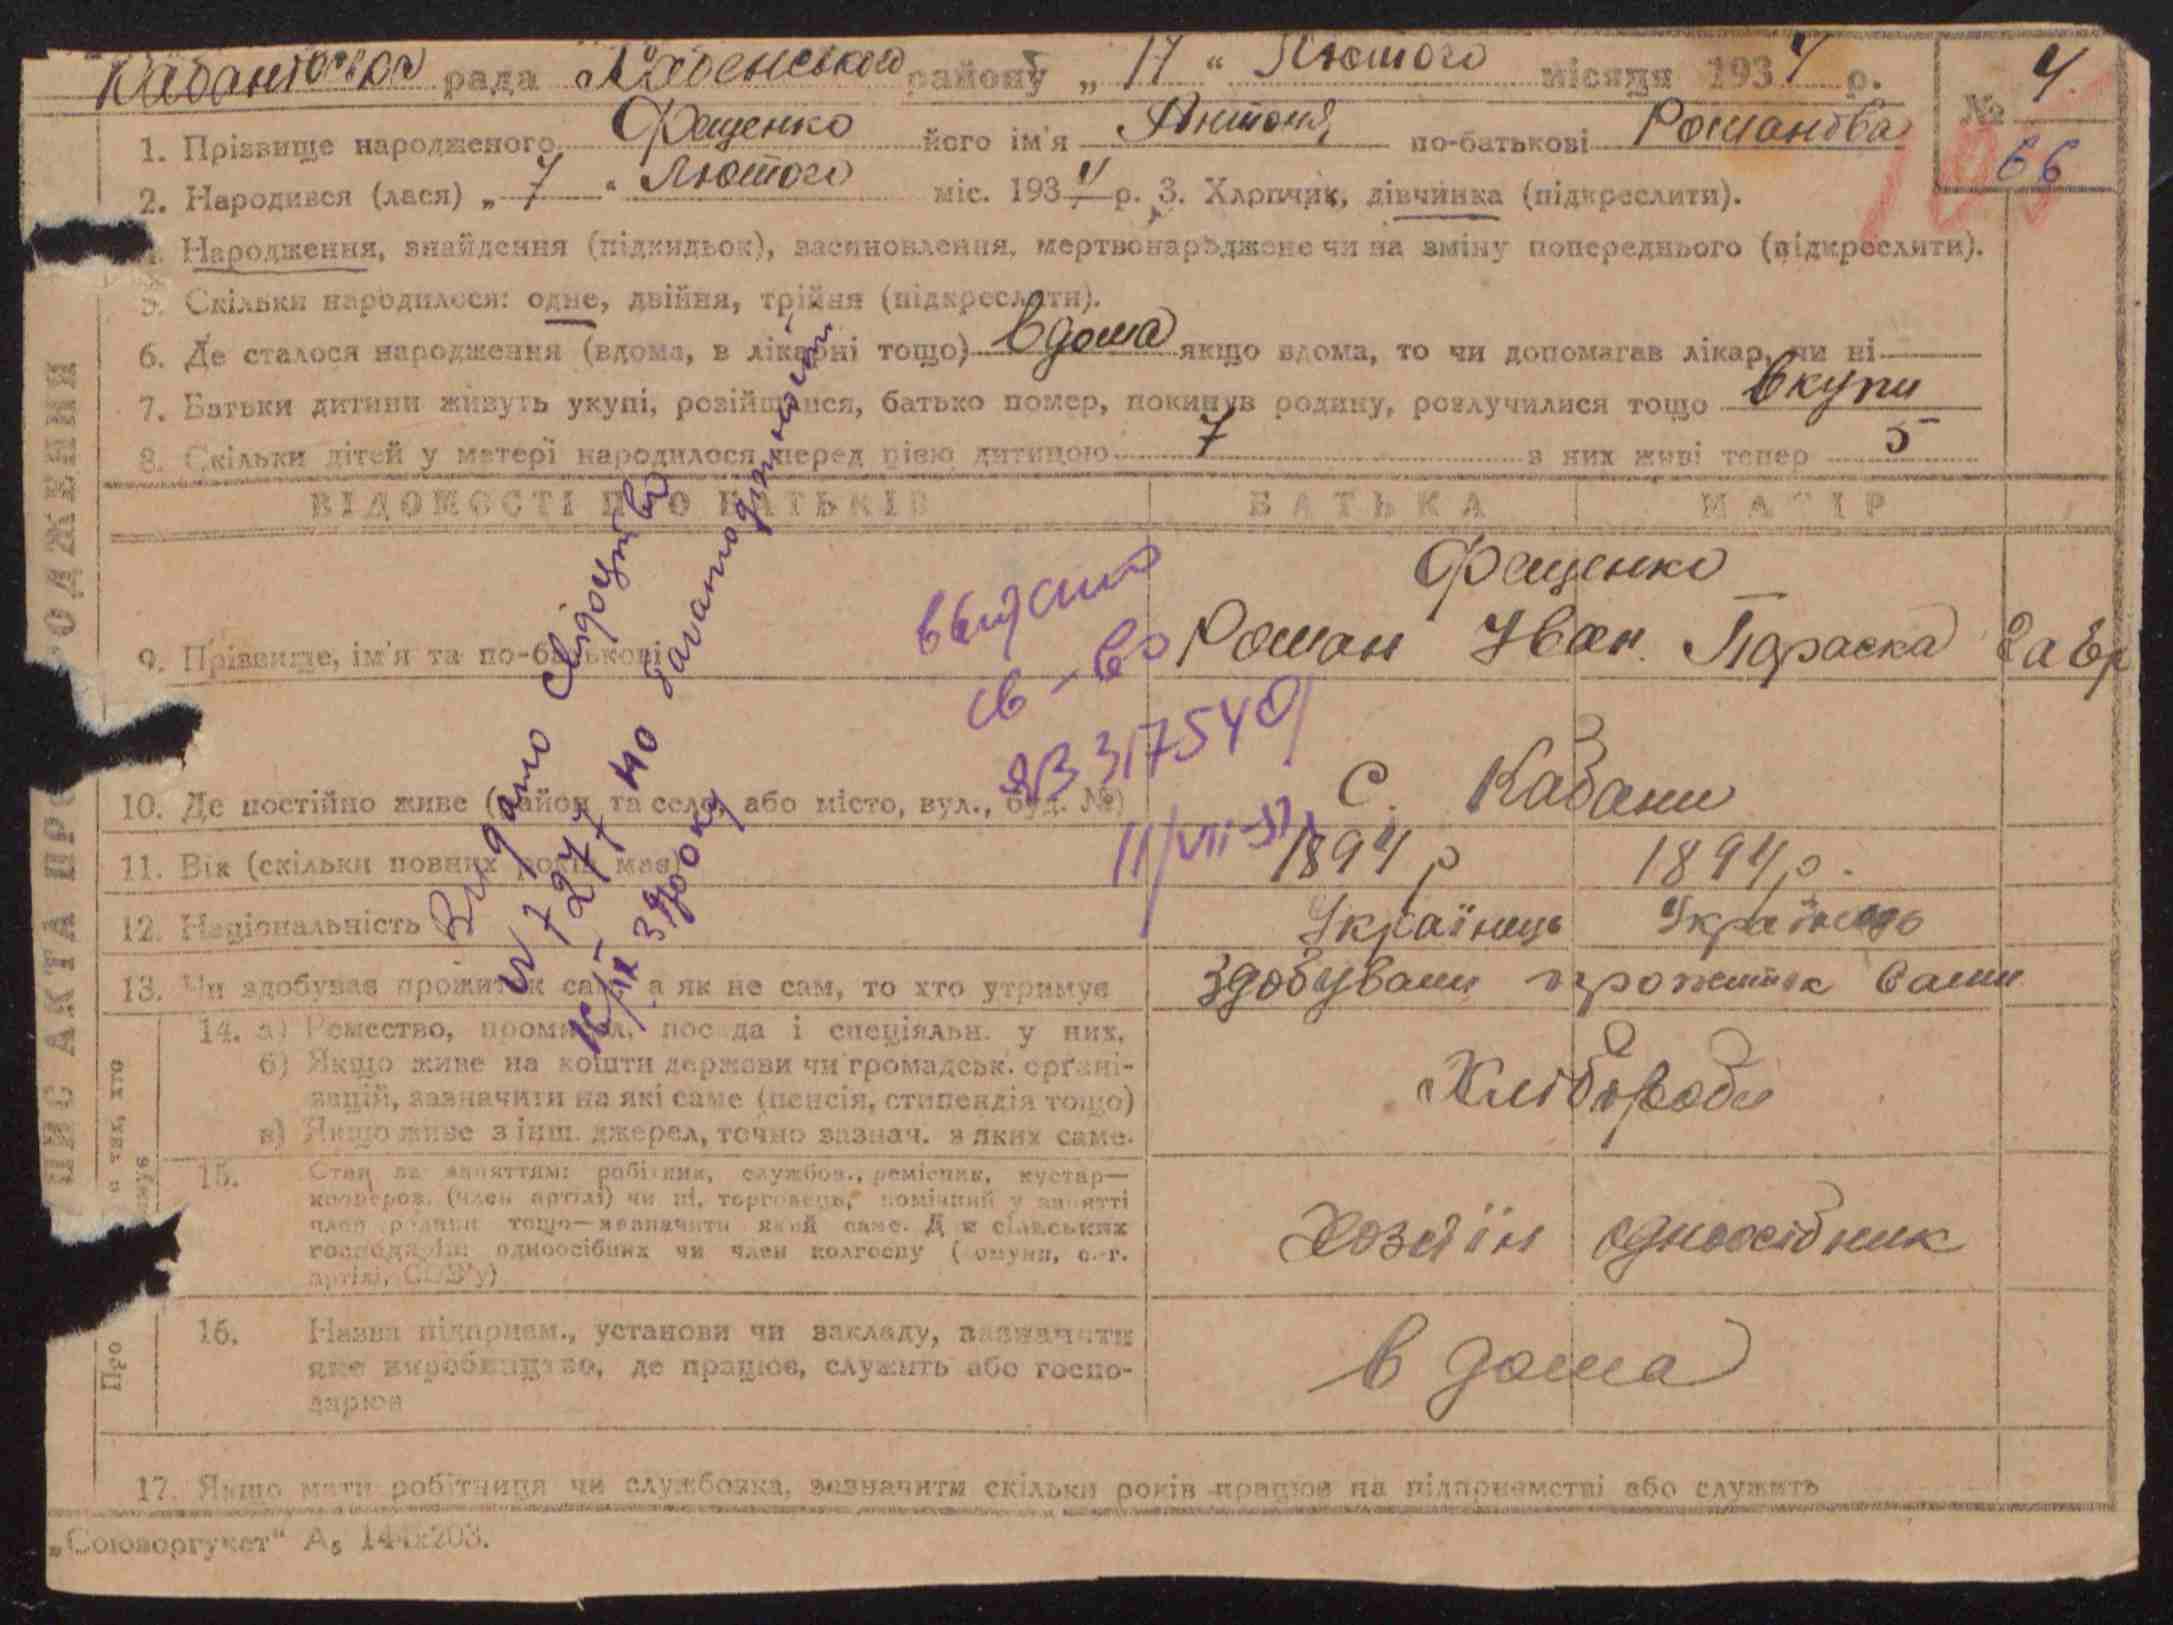 Кабанівська рада Хабенського району „ 17 " Лютого місяця 1934 р. № 4
1. Прізвище народженого Фещенко його ім'я Антоня по-батькові Романова 66
2. Народився (лася) „ 7 " Лютого міс. 1934 р. 3. Хлопчик, дівчинка (підкреслити).
4. Народження, знайдення (підкидьок), засиновлення, мертвонароджене чи на зміну попереднього (підкреслити).
5. Скільки народилося: одне, двійня, трійня (підкреслити).
6. Де сталося народження (вдома, в лікарні тощо) вдома якщо вдома, то чи допомагав лікар, чи ні
7. Батьки дитини живуть укупі, розійшлися, батько помер, покинув родину, розлучилися тощо вкупи
8. Скільки дітей у матері народилося перед цією дитиною 7 з них живі тепер 5
ВІДОМОСТІ ПРО БАТЬКІВ БАТЬКА МАТІР
Фещенко
9. Прізвище, ім'я та по-батькові Роман Іван. Параска Гавр
10. Де постійно живе (район та село, або місто, вул., буд. №) С. Кабани
11. Вік (скільки повних років має) 1894 р 1894 р.
12. Національність Українець Українець
13. Чи здобуває прожиток сам, а як не сам, то хто утримує Здобували прожиток Сами
14. а) Ремество, промисел, посада і спеціяльн. у них.
б) Якщо живе на кошти держави чи громадськ. органі-
зацій, зазначити на які саме (пенсія, стипендія тощо)
в) Якщо живе з інш. джерел, точно зазнач. з яких саме.
Хлібороби
15. Стан за заняттям: робітник, службов., ремісник, кустар—
коопером. (член артілі) чи ні, торговець, помічний у занятті
член родини тощо—зазначити який саме. Для сільських
господарів: одноосібних чи член колгоспу (комуни, с.-г.
артілі, СОЗ'у)
Хозяїн одноосібник
16. Назва підприєм., установи чи закладу, зазначити
яке виробництво, де працює, служить або госпо-
дарює
в дома
17. Якщо мати робітниця чи службовка, зазначити скільки років працює на підприємстві або служить
„Союзоргучет" А5 144х203.
Видано свідоцтво
№ 7277 по багатодітності
16/IX 39 року
выдано
св-во
ЯВ 317540
11/VII-51